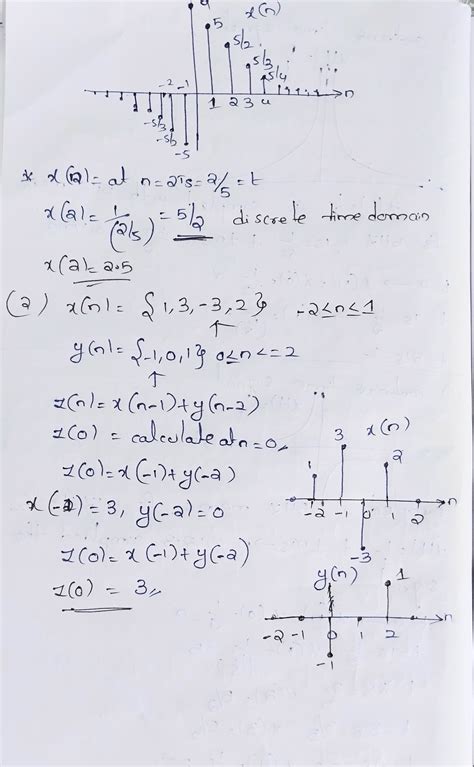 x(n)
5
5/2
5/3
5/4
-2 -1
1 2 3 4
n
-5/3
-5/2
-5
* x(2)= at n=2Ts=2/5=t
x(2)= 1/(2/5) = 5/2 discrete time domain
x(2)=2.5
(2) x(n)= {1,3,-3,2} -2≤n≤1
↑
y(n)= {-1,0,1} 0≤n<=2
↑
z(n)=x(n-1)+y(n-2)
z(0) = calculate at n=0,
z(0)=x(-1)+y(-2)
x(-1)=3, y(-2)=0
z(0)=x(-1)+y(-2)
z(0) = 3
x(n)
1 3 2
-2 -1 0 1 2
n
-3
y(n)
1
n
-2 -1 0 1 2
-1